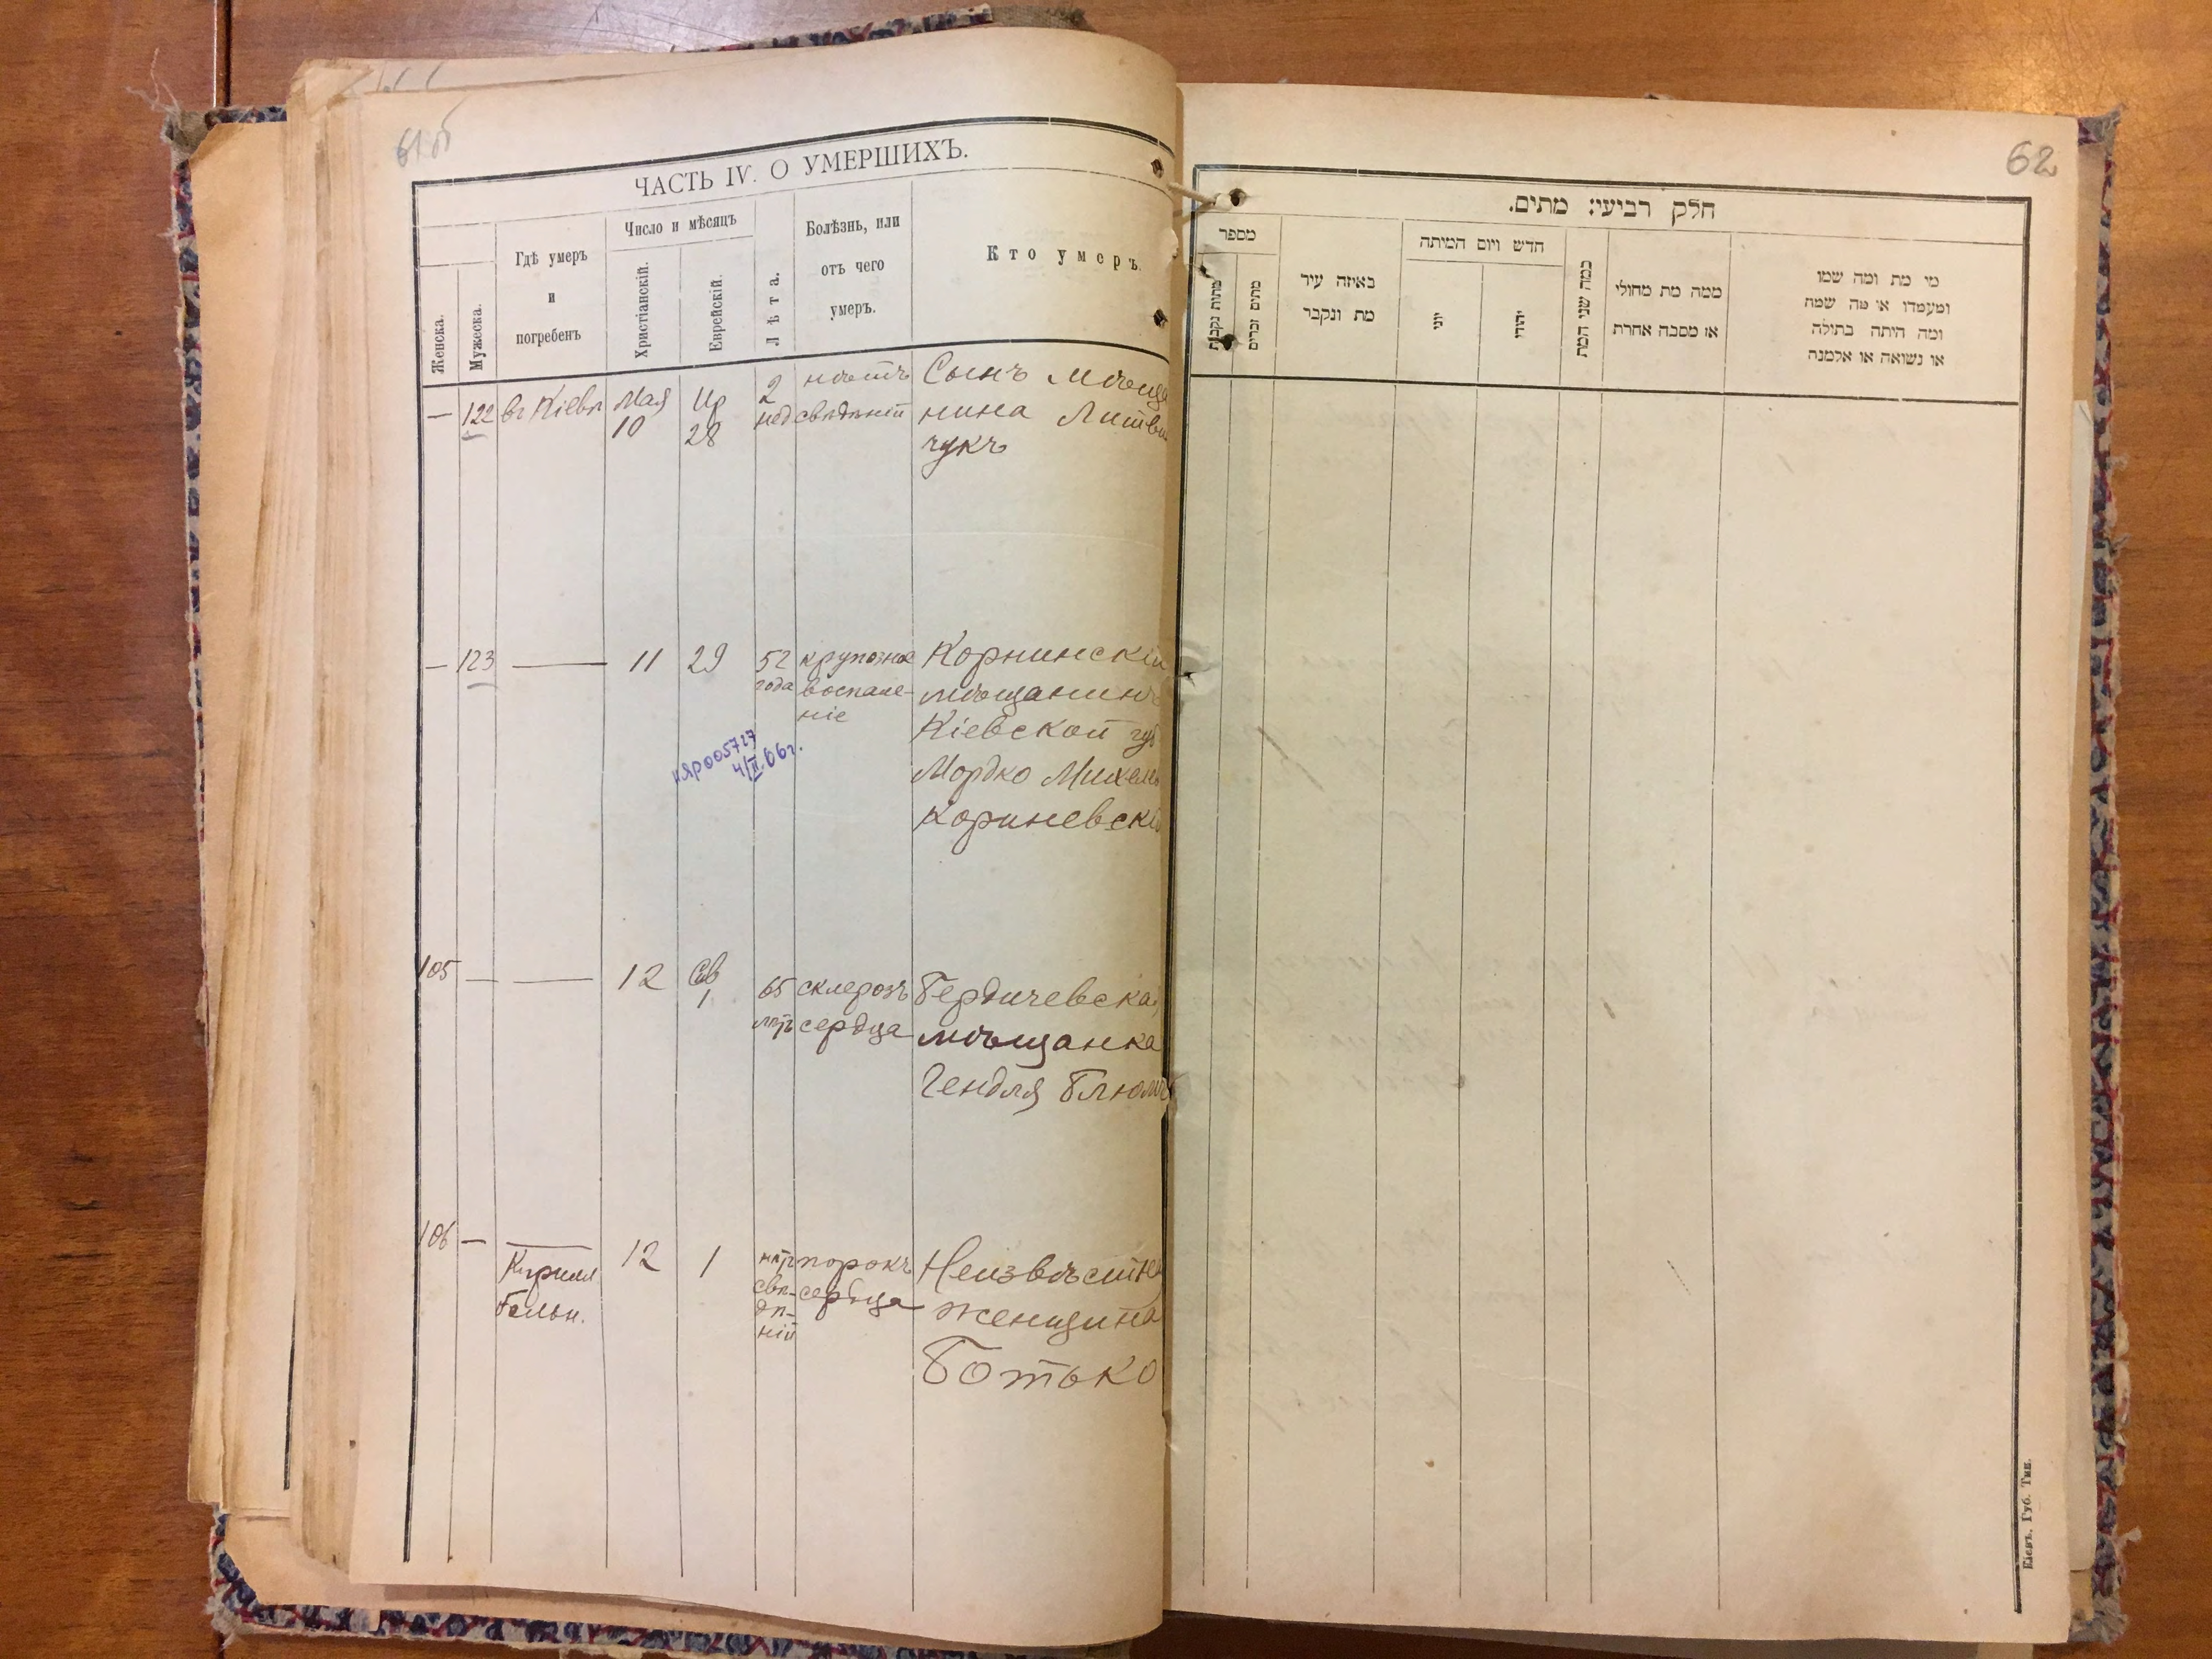 61 об
ЧАСТЬ IV. О УМЕРШИХЪ.
Женска.
Мужеска.
Гдѣ умеръ
и
погребенъ
Число и мѣсяцъ
Христіанскій.
Еврейскій.
Лѣта.
Болѣзнь, или
отъ чего
умеръ.
Кто умеръ.
— 122 въ Кіевѣ Мая 10 Ир 28
2 нед
нѣтъ
свѣдѣній
Сынъ мѣща
нина Литви
чукъ
— 123 — 11 29
52
года
крупозное
воспале-
ніе
Корнинскій
мѣщанинъ
Кіевской губ
Мордко Михел
Кориневскій
105 — — 12 Сив 1
65
лѣтъ
склерозъ
сердца
Бердичевска
мѣщанка
Гендля Блюм
106 — —
Кирилл
больн.
12 1
нѣтъ
свѣ-
дѣ-
ній
порокъ
сердца
Неизвѣстн
женщина
Ботько
62
חלק רביעי: מתים.
מספר
מתות נקבות
מתים זכרים
באיזה עיר
מת ונקבר
חדש ויום המיתה
יוני
יהודי
כמה שני המת
ממה מת מחולי
או מסבה אחרת
מי מת ומה שמו
ומעמדו או מה שמה
ומה היתה בתולה
או נשואה או אלמנה
Кіевъ. Губ. Тип.